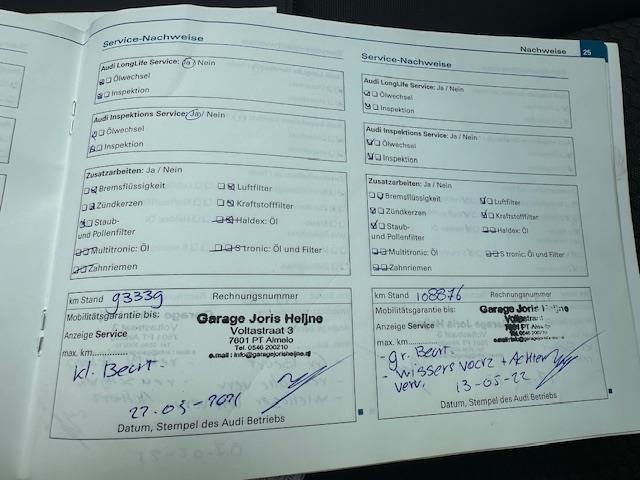 Service-Nachweise
Audi LongLife Service: Ja / Nein
Ölwechsel
Inspektion
Audi Inspektions Service: Ja / Nein
Ölwechsel
Inspektion
Zusatzarbeiten: Ja / Nein
Bremsflüssigkeit
Luftfilter
Zündkerzen
Kraftstofffilter
Staub-
und Pollenfilter
Haldex: Öl
Multitronic: Öl
S tronic: Öl und Filter
Zahnriemen
km Stand 93339
Rechnungsnummer
Mobilitätsgarantie bis:
Anzeige Service
max. km
Garage Joris Heijne
Voltastraat 3
7601 PT Almelo
Tel. 0546 200210
e.mail: info@garagejorisheijne.nl
kl. Beurt.
Datum, Stempel des Audi Betriebs
Nachweise 25
Service-Nachweise
Audi LongLife Service: Ja / Nein
Ölwechsel
Inspektion
Audi Inspektions Service: Ja / Nein
Ölwechsel
Inspektion
Zusatzarbeiten: Ja / Nein
Bremsflüssigkeit
Luftfilter
Zündkerzen
Kraftstofffilter
Staub-
und Pollenfilter
Haldex: Öl
Multitronic: Öl
S tronic: Öl und Filter
Zahnriemen
km Stand 108876
Rechnungsnummer
Mobilitätsgarantie bis:
Anzeige Service
max. km
Garage Joris Heijne
7601 PT Almelo
Tel. 0546 200210
- gr. Beurt.
- wissers voor + Achter
verv.
13-05-22
Datum, Stempel des Audi Betriebs